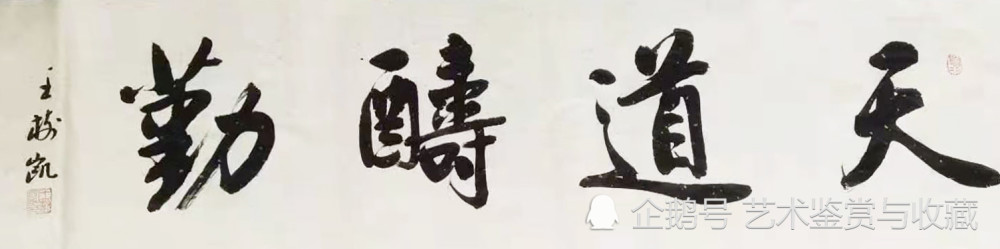 天道醻勤
王树凯
企鹅号 艺术鉴赏与收藏